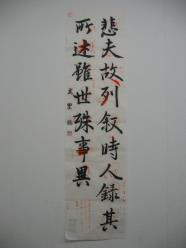 悲夫故列叙時人録其
所述雖世殊事異